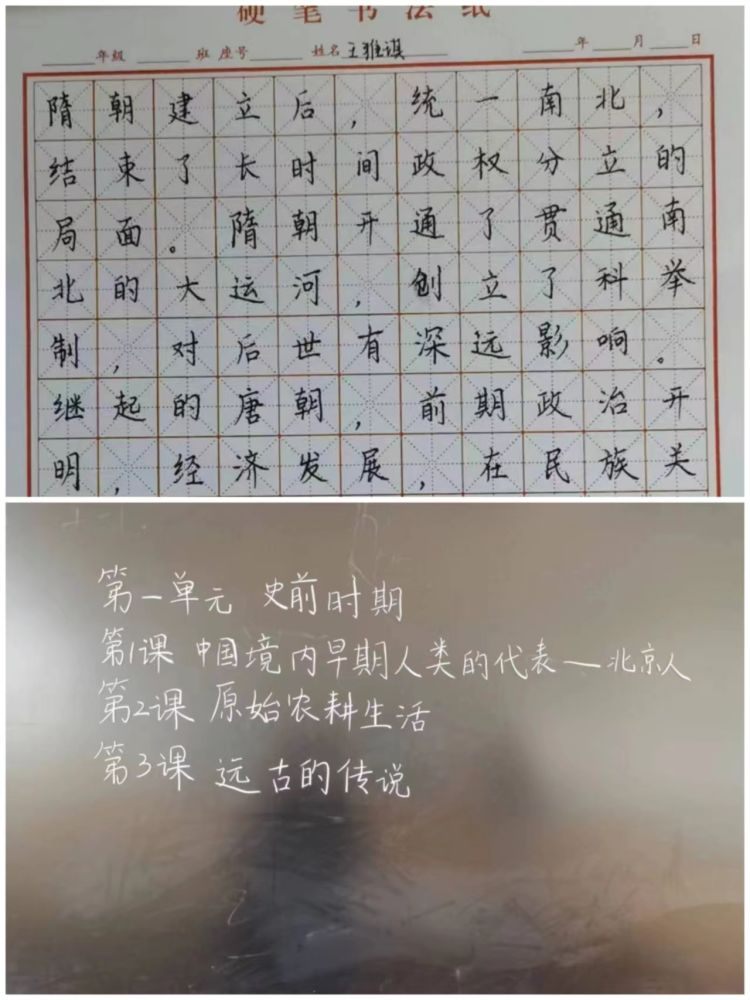 硬笔书法纸
年级 班 座号 姓名王雅琪 年 月 日
隋朝建立后，统一南北，
结束了长时间政权分立的
局面。隋朝开通了贯通南
北的大运河，创立了科举
制，对后世有深远影响。
继起的唐朝，前期政治开
明，经济发展，在民族关
第一单元 史前时期
第1课 中国境内早期人类的代表—北京人
第2课 原始农耕生活
第3课 远古的传说